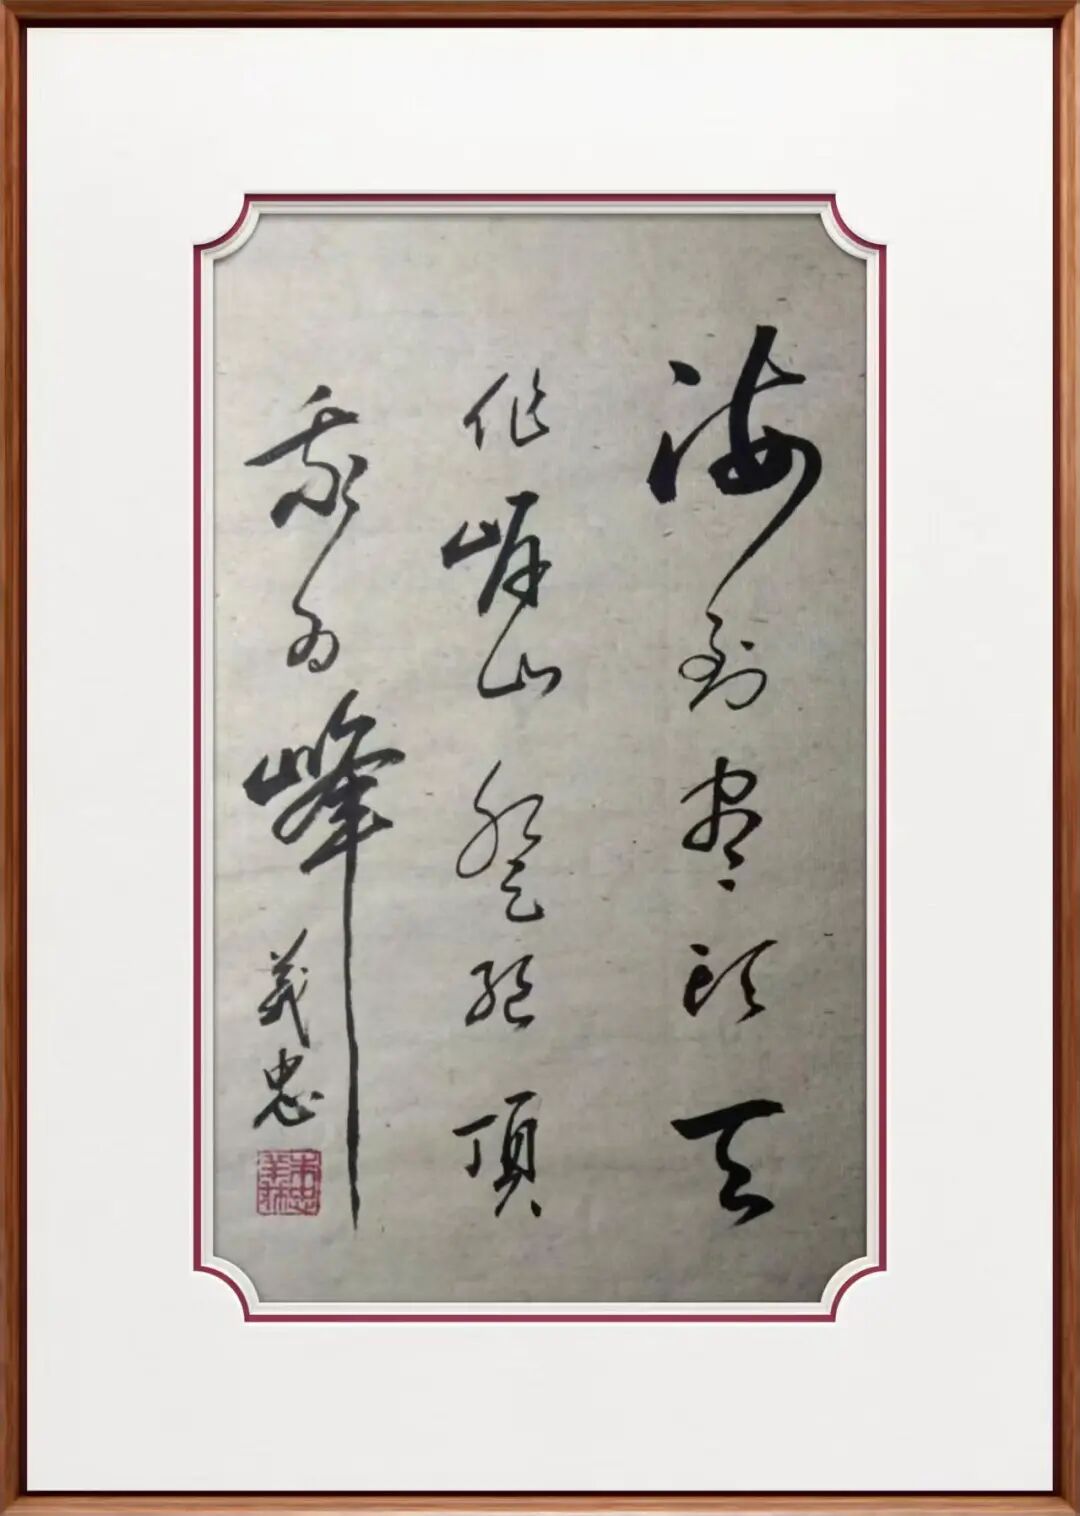 海到尽头天
作崖山登绝頂
我为峰
义忠